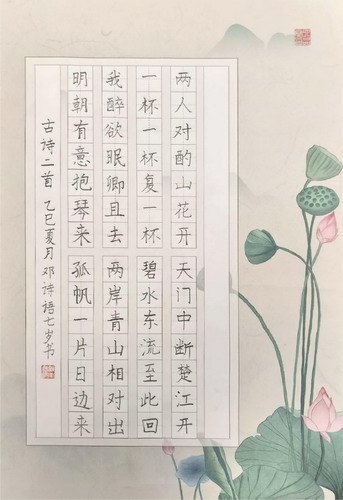 两人对酌山花开
一杯一杯复一杯
我醉欲眠卿且去
明朝有意抱琴来
天门中断楚江开
碧水东流至此回
两岸青山相对出
孤帆一片日边来
古诗二首 乙巳夏月 邓诗语七岁书